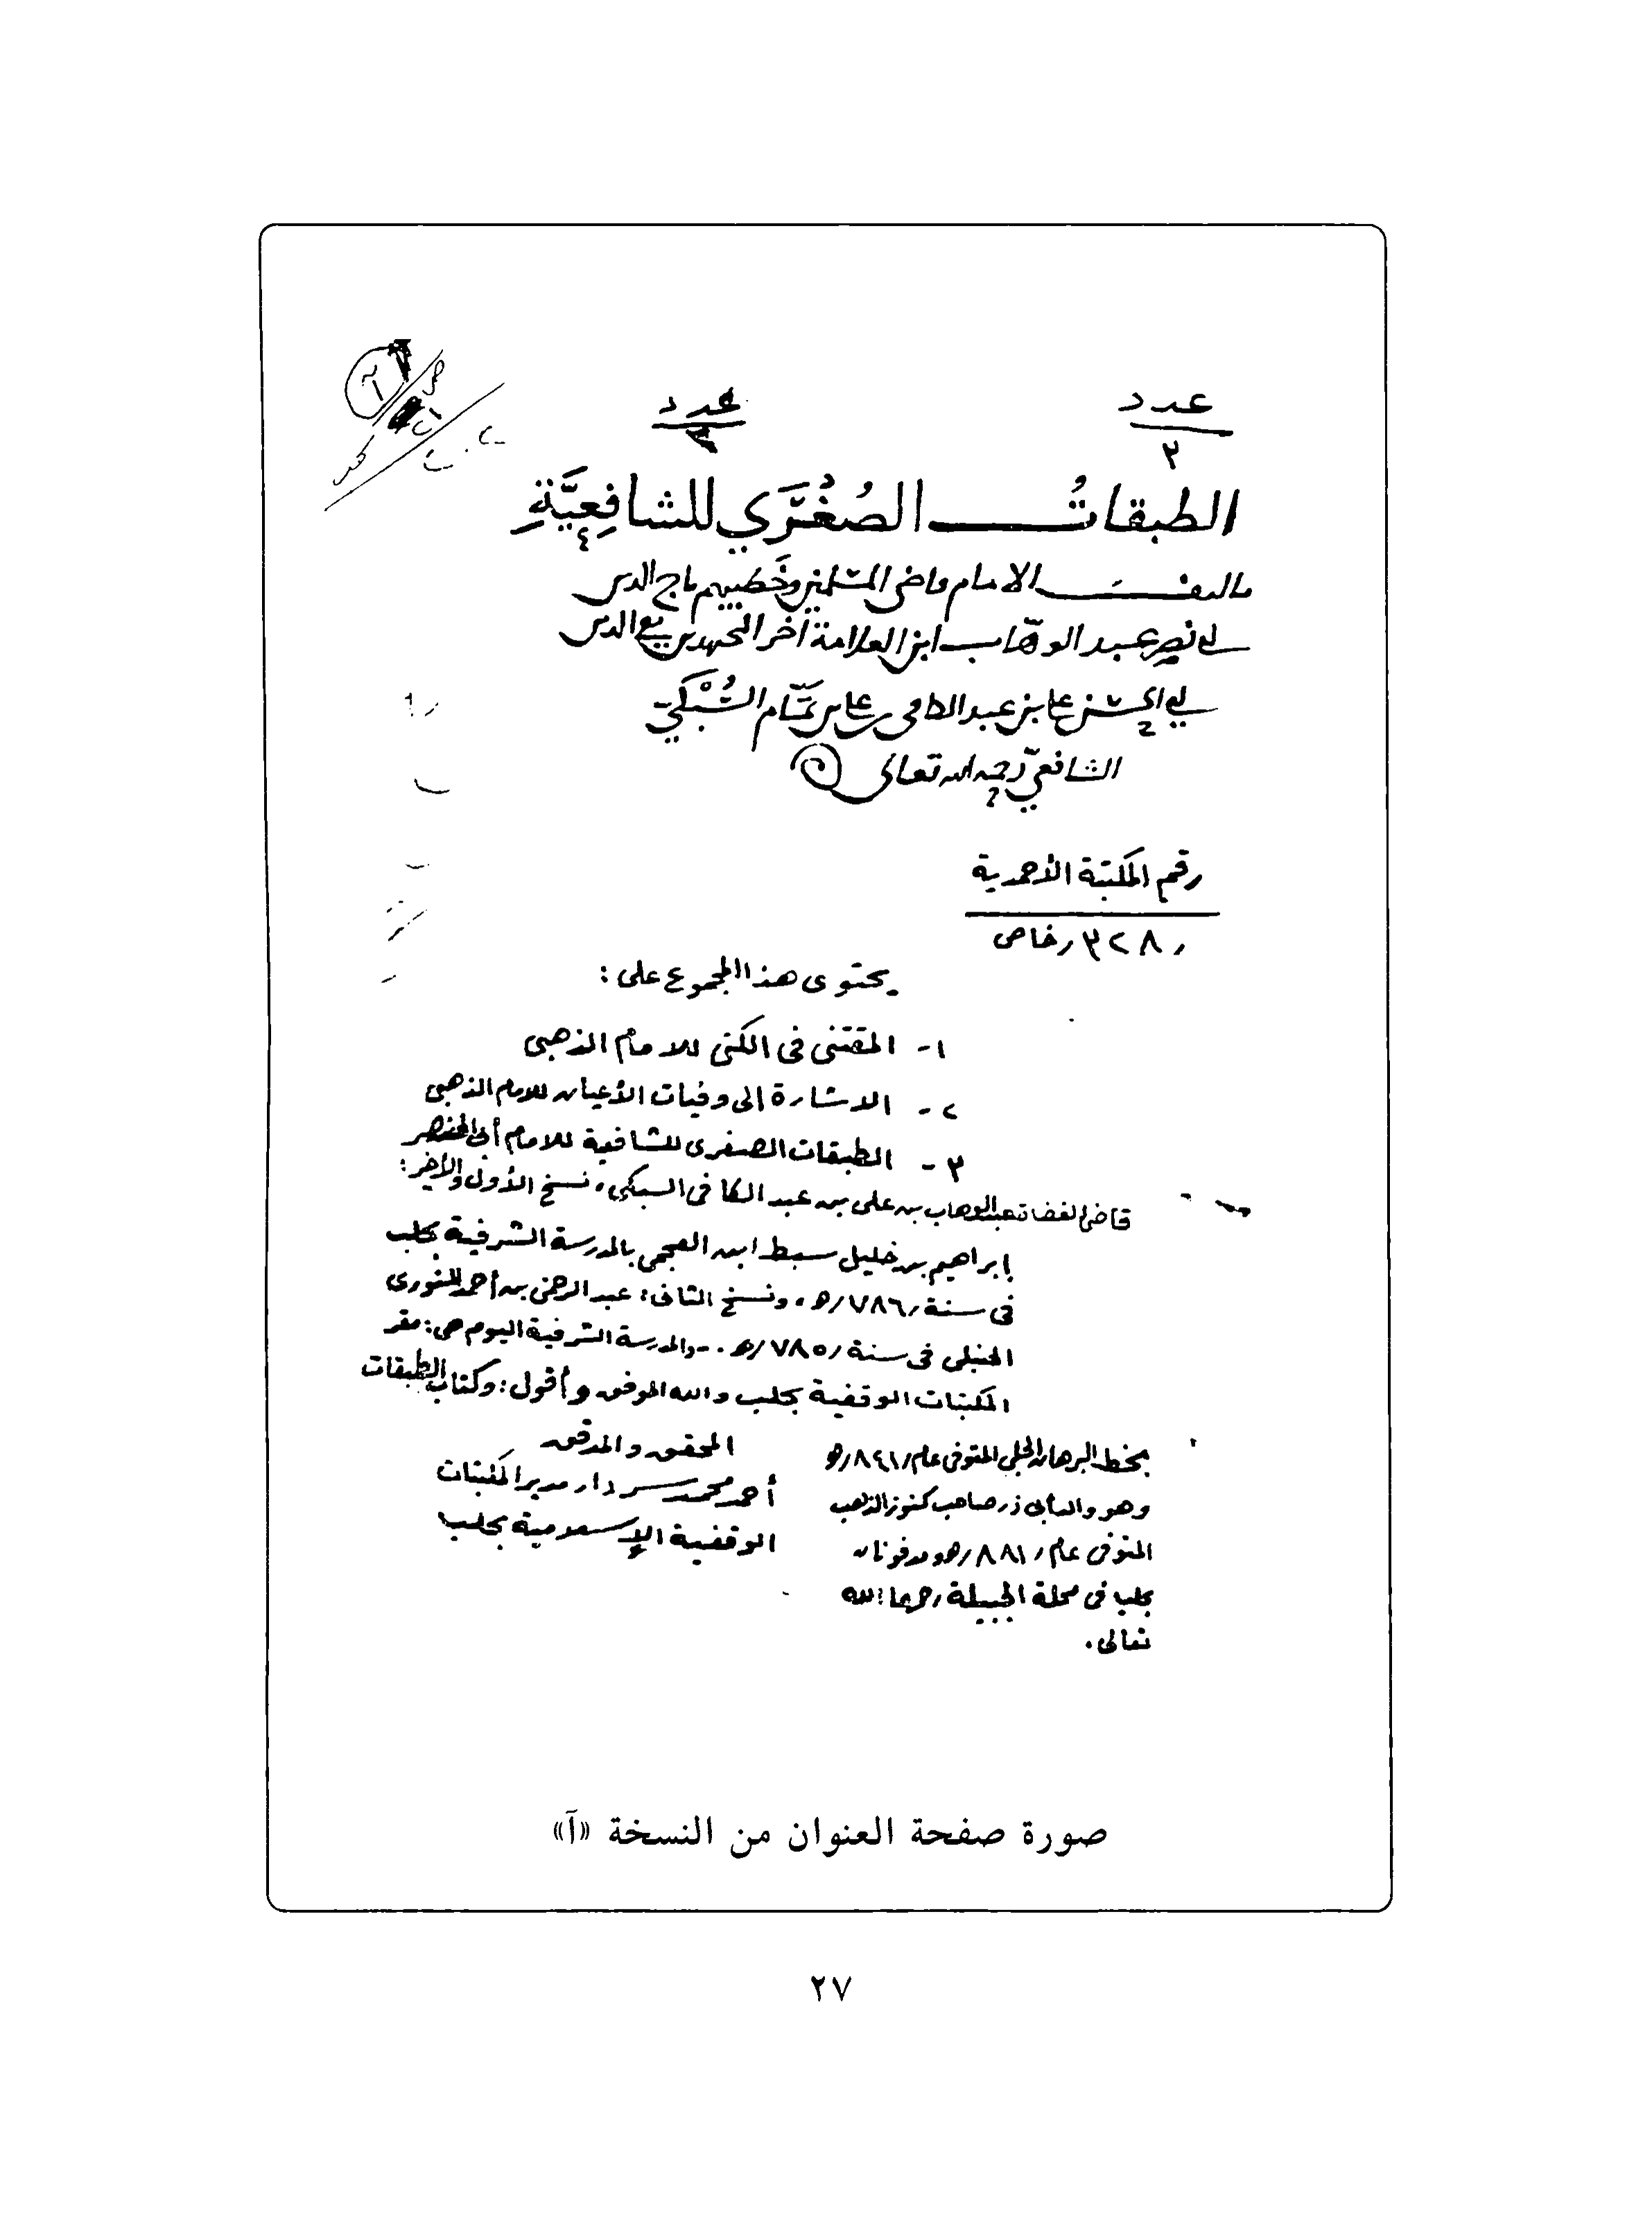 عدد
٣
عدد
٣
الطبقاتُ الصُغْرَي للشافِعِيَّةِ
تاليف الامام قاضي المسلمين وخَطيبهم تاج الدين
ابي نصر عبد الوهّاب ابن العلامة آخر المجتهدين تقي الدين
ابي الحسن علي بن عبد الكافي بن علي بن تمّام السُّبْكيّ
الشافعيّ رحمه الله تعالى
رقم المكتبة الأحمدية
/٣٢٨/ خاص
يحتوى هذا المجموع على:
١- المقتنى فى الكنى للامام الذهبى
٢- الاشارة الى وفيات الأعيان للامام الذهبى
٣- الطبقات الصغرى للشافعية للامام أبى النصر
قاضى القضاة عبد الوهاب بن على بن عبد الكافى السبكى، نسخ الأول والأخير:
إبراهيم بن خليل سبط ابن العجمى بالمدرسة الشرفية بحلب
فى سنة /٧٨٦/هـ، ونسخ الثانى: عبد الرحمن بن أحمد
الحنبلى فى سنة /٧٨٥/هـ .- والمدرسة الشرفية اليوم هى: مقر
المكتبات الوقفية بحلب والله الموفق وأقول: وكتاب الطبقات
بخط البرهان الحلبى المتوفى عام/٨٤١/هـ
وهو والد أبى ذر صاحب كنوز الذهب
المتوفى عام/٨٨١/هـ ومدفونان
بحلب فى محلة الجبيلة رحمهما الله
تعالى.
المحقق والمدقق
أحمد محمد سردار مدير المكتبات
الوقفية الإسلامية بحلب
صورة صفحة العنوان من النسخة «آ»
٢٧